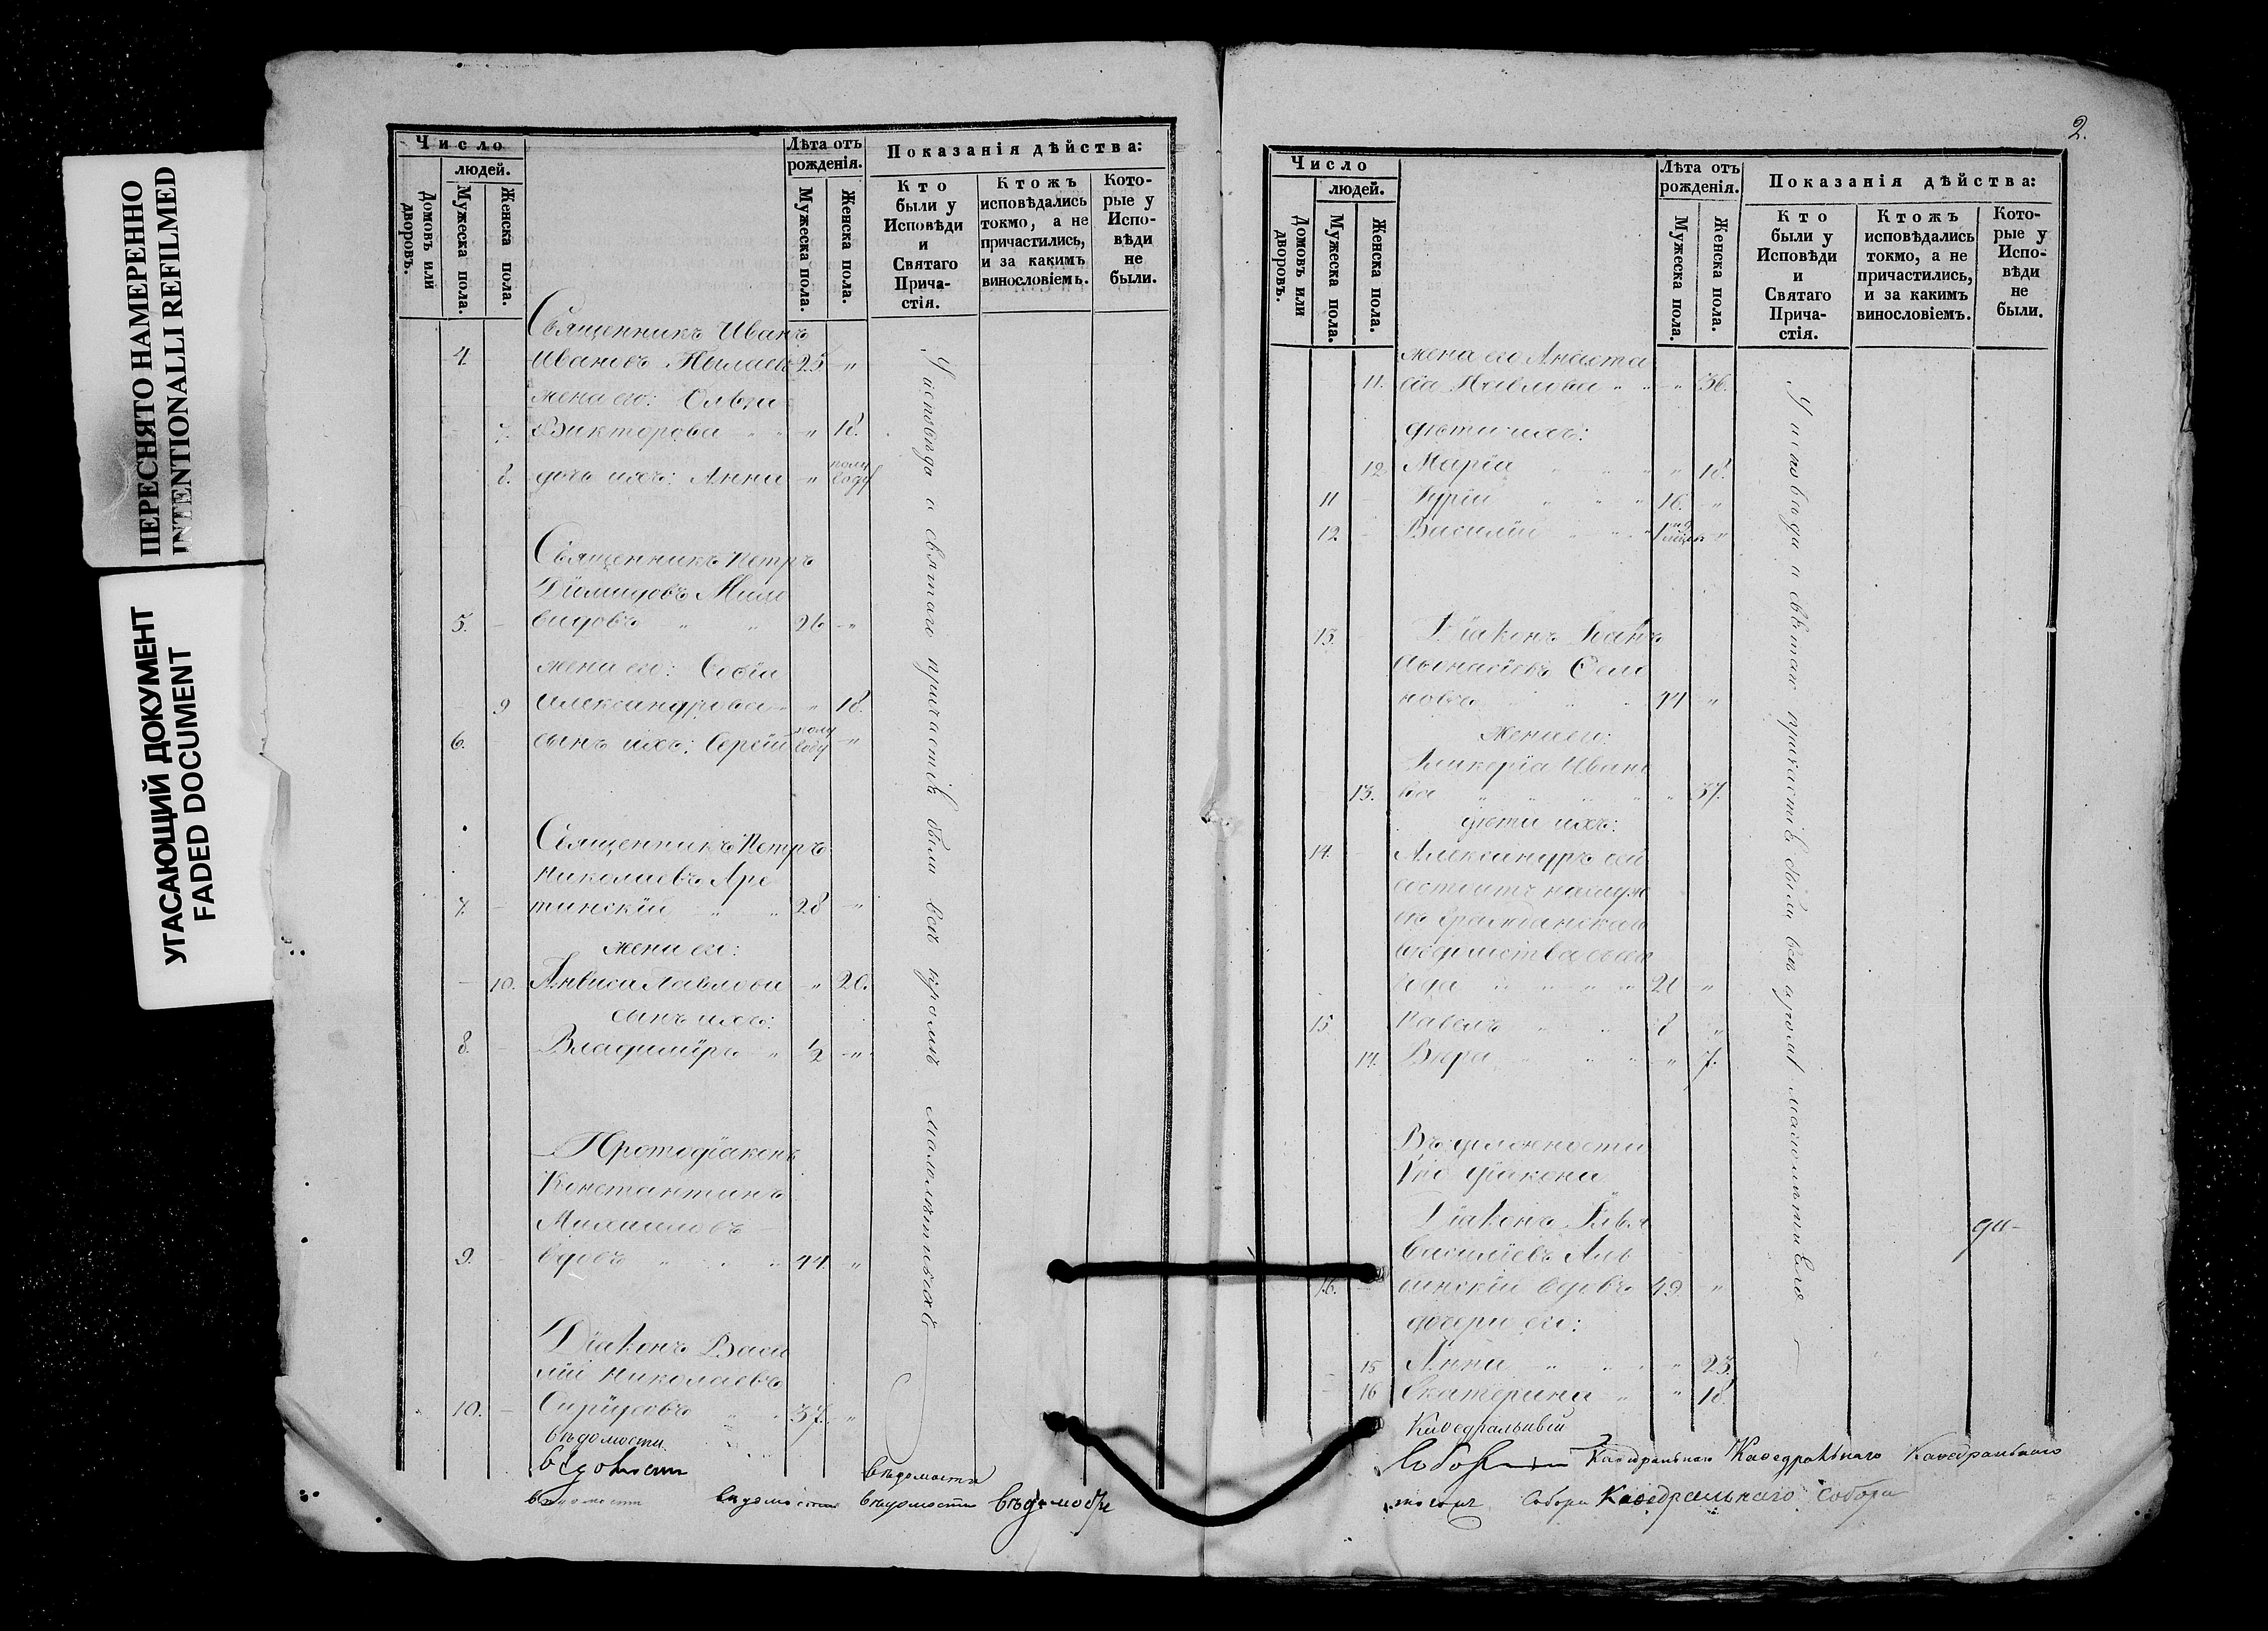 ПЕРЕСНЯТО НАМЕРЕННО
INTENTIONALLI REFILMED
УГАСАЮЩИЙ ДОКУМЕНТ
FADED DOCUMENT
Число
людей.
Домовъ или дворовъ.
Мужеска пола.
Женска пола.
Лѣта отъ рожденія.
Мужеска пола.
Женска пола.
Показанія дѣйства:
Кто были у Исповѣди и Святаго Прича-
стія.
Ктожъ исповѣдались токмо, а не причастились, и за какимъ винословіемъ.
Кото-
рые у Испо-
вѣди не были.
Священникъ Иванъ
4. Ивановъ 25 „
жена его: Ольга
7. Викторова „ 18.
8. дочь ихъ: Анна „ полу году
Священникъ Петръ
Діомидовъ Мило
5. видовъ „ „ 26 „
жена его: Софія
9 Александрова „ 18.
6. сынъ ихъ: Сергій полу году „
Священникъ Петръ
Николаевъ Аре
7. тинскій „ „ 28 „
жена его:
10. Анфиса Павлова „ 20.
сынъ ихъ:
8. Владиміръ „ 1/2 „
Протодіаконъ
Константинъ
Михаиловъ
9. вдовъ „ „ „ 44. „
Діаконъ Васи
лій Николаевъ
10. „ 37. „
У исповѣди и святаго причастія были всѣ кромѣ малолѣтнихъ
вѣдомости
вѣдомости
вѣдомости
вѣдомости вѣдомости вѣдомости
2.
Число
людей.
Домовъ или дворовъ.
Мужеска пола.
Женска пола.
Лѣта отъ рожденія.
Мужеска пола.
Женска пола.
Показанія дѣйства:
Кто были у Исповѣди и Святаго Прича-
стія.
Ктожъ исповѣдались токмо, а не причастились, и за какимъ винословіемъ.
Кото-
рые у Испо-
вѣди не были.
жена его Анаста
11. сія Павлова „ „ „ 36.
дѣти ихъ:
12 Марія „ „ „ 18.
11 Гурій „ „ „ 16. „
12 Василій „ „ „ „
13. Діаконъ
Аѳанасіевъ Сели
новъ „ „ „ 44 „
жена его:
Гликерія Ивано
13. ва „ „ „ „ 37.
дѣти ихъ:
14. Александръ сей
состоитъ на служ
гражданскаго
вѣдомства
года „ „ „ „ 21 „
15 Павелъ „ „ 8 „
14. Вѣра „ „ „ 7.
Въ должности
діакона
Діаконъ Илья да
Василіевъ
16. вдовъ 49. „
дочери его:
15 Анна „ „ „ „ 23.
16 Екатерина „ „ 18.
У исповѣди и святаго причастія были всѣ кромѣ
Каѳедральный
Каѳедральнаго Каѳедральнаго Каѳедральнаго
Собора Каѳедральнаго Собора